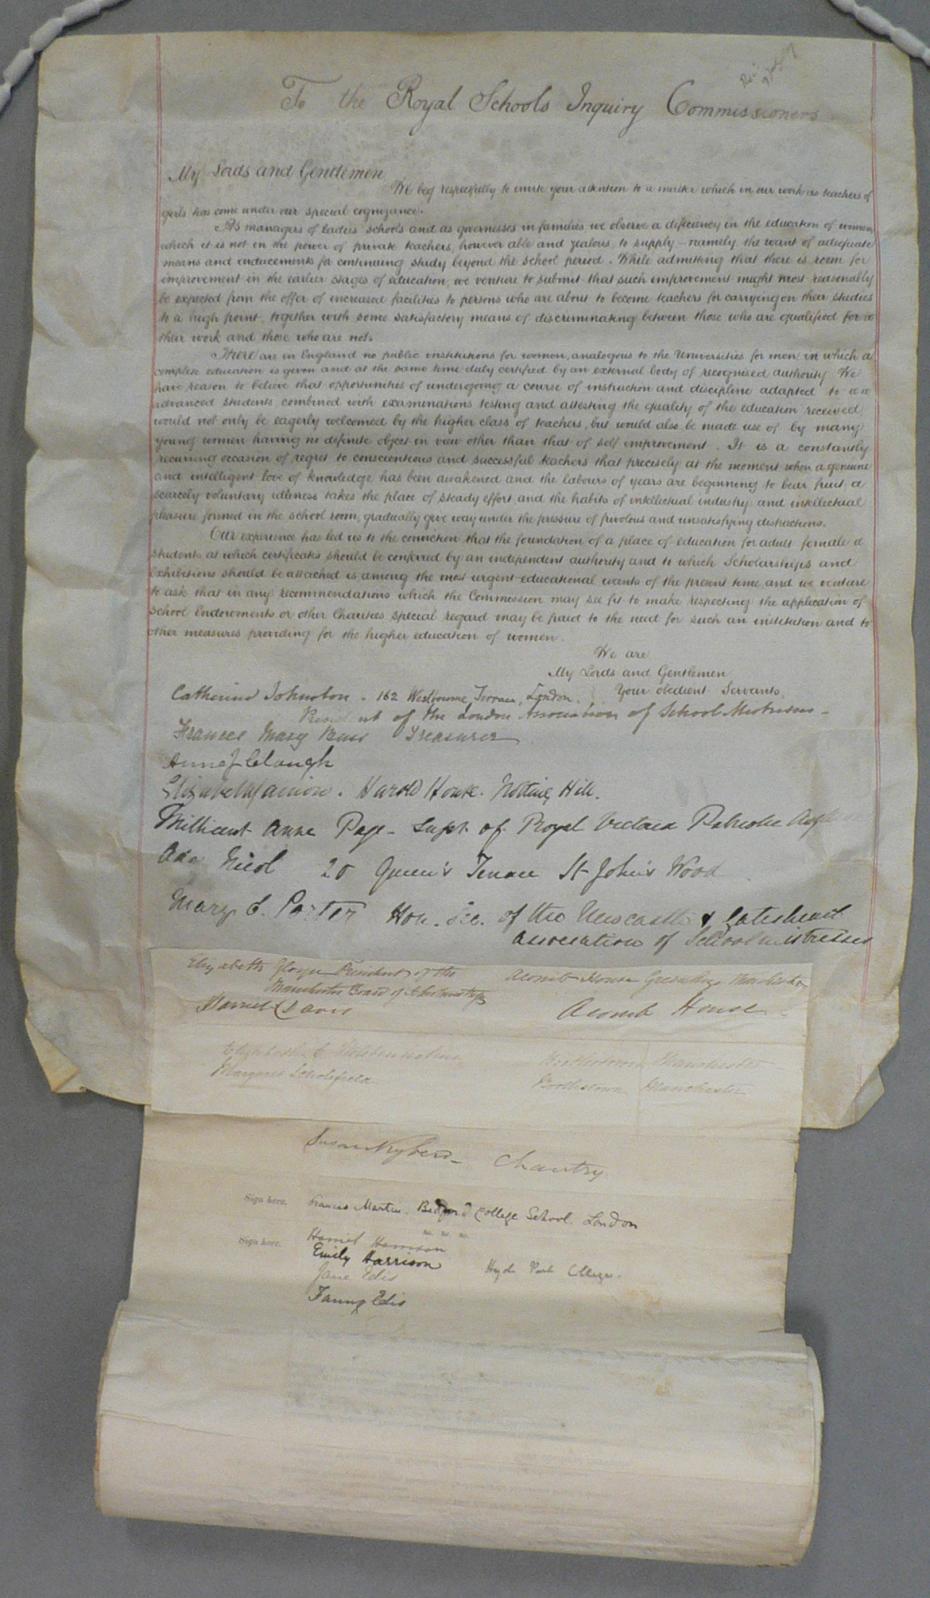 To the Royal Schools Inquiry Commissioners
My Lords and Gentlemen
We beg respectfully to invite your attention to a matter which in our work as teachers of
girls has come under our special cognizance.
As managers of ladies' schools and as governesses in families we observe a deficiency in the education of women
which it is not in the power of private teachers, however able and zealous, to supply – namely the want of adequate
means and inducements for continuing study beyond the school period. While admitting that there is room for
improvement in the earlier stages of education, we venture to submit that such improvement might most reasonably
be expected from the offer of increased facilities to persons who are about to become teachers for carrying on their studies
to a high point, together with some satisfactory means of discriminating between those who are qualified for
their work and those who are not.
There are in England no public institutions for women, analogous to the Universities for men, in which a
complete education is given and at the same time duly certified by an external body of recognised authority. We
have reason to believe that opportunities of undergoing a course of instruction and discipline adapted to
advanced students combined with examinations testing and attesting the quality of the education received,
would not only be eagerly welcomed by the higher class of teachers, but would also be made use of by many
young women having no definite object in view other than that of self improvement. It is a constantly
recurring occasion of regret to conscientious and successful teachers that precisely at the moment when a genuine
and intelligent love of knowledge has been awakened and the labours of years are beginning to bear fruit, a
scarcely voluntary idleness takes the place of steady effort and the habits of intellectual industry and intellectual
pleasure formed in the school room, gradually give way under the pressure of frivolous and unsatisfying distractions.
Our experience has led us to the conviction that the foundation of a place of education for adult female
students at which certificates should be conferred by an independent authority and to which Scholarships and
Exhibitions should be attached is among the most urgent educational wants of the present time, and we venture
to ask that in any recommendations which the Commission may see fit to make respecting the application of
School Endowments or other Charities special regard may be paid to the need for such an institution and to
other measures providing for the higher education of women.
We are
My Lords and Gentlemen
Your obedient Servants
Catherine Johnston - 162 Westbourne Terrace, London.
President of the London Association of School Mistresses -
Frances Mary Buss Treasurer
Anne J Clough
Harold House. Notting Hill.
Millicent Anne Page - Supt. of Royal Victoria Patriotic
Ada Nicol 20 Queen's Terrace St John's Wood
Mary E. Porter Hon. Sec. of the Newcastle & Gateshead
association of Schoolmistresses
Elizabeth Gloyn President of the Acomb House Manchester
Manchester Board of Schoolmistresses
Harriet Davis Acomb House
Elizabeth C Manchester
Margaret Scholefield Manchester
Susan Kyberd - Chantry
Sign here. Frances Martin. Bedford College School. London
Sign here. Harriet Harrison
Emily Harrison Hyde Park College.
Jane Edis
Fanny Edis